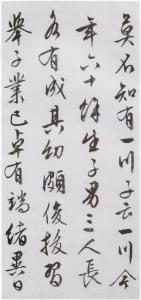 莫不知有一川子云一川今
年六十馀生子男三人長
各有成其幼頗俊拔習
舉子業已卓有端緒異日